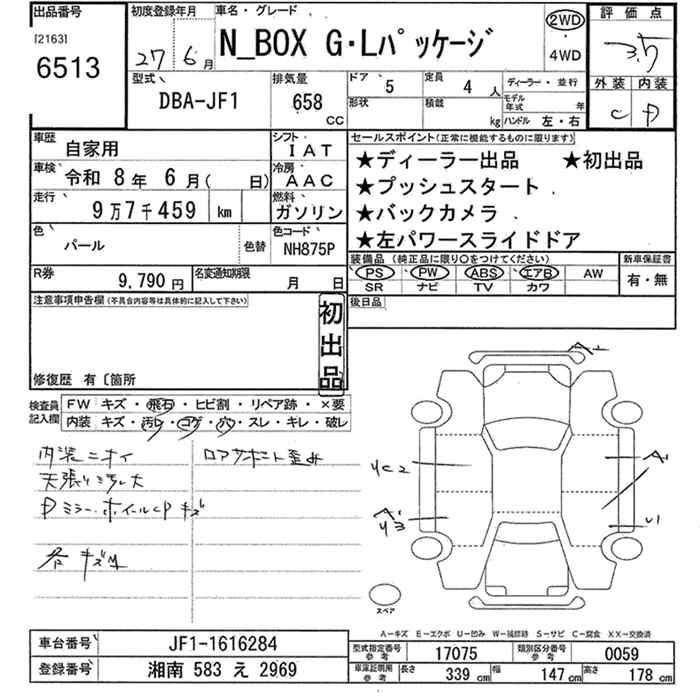 出品番号 初度登録年月 車名・グレード 評価点
[2163]
6513
27 6月 N_BOX G・Lパッケージ 2WD 4WD 3.5
型式 DBA-JF1 排気量 658 CC
ドア 5 定員 4 人 ディーラー・並行 外装 内装
形状 積載 kg モデル年式 年 ハンドル 左・右 C D
車歴 自家用 シフト IAT
車検 令和 8年 6月( 日) 冷房 AAC
走行 9万7千459 km 燃料 ガソリン
色 パール 色替 色コード NH875P
R券 9,790 円 名変通知期限 月 日
セールスポイント(正常に機能するものに限ります)
★ディーラー出品 ★初出品
★プッシュスタート
★バックカメラ
★左パワースライドドア
装備品(純正品に限り○をつけてください) 新車保証書
PS PW ABS エアB AW 有・無
SR ナビ TV カワ
後日品
注意事項申告欄(不具合内容等は具体的に記入して下さい)
初出品
修復歴 有〔箇所
検査員記入欄 FW キズ・飛石・ヒビ割・リペア跡・×要
内装 キズ・汚レ・コゲ・穴・スレ・キレ・破レ
内装ニオイ ロアサポート歪み
天張り汚レ大
Dミラー.ホイールCP キズ
各 キズ凹
A2
A1
U1
スペア
A-キズ E-エクボ U-凹み W-補修跡 S-サビ C-腐食 XX-交換済
車台番号 JF1-1616284
登録番号 湘南 583 え 2969
型式指定番号 参考 17075 類別区分番号 参考 0059
車庫証明用 参考 長さ 339 cm 幅 147 cm 高さ 178 cm